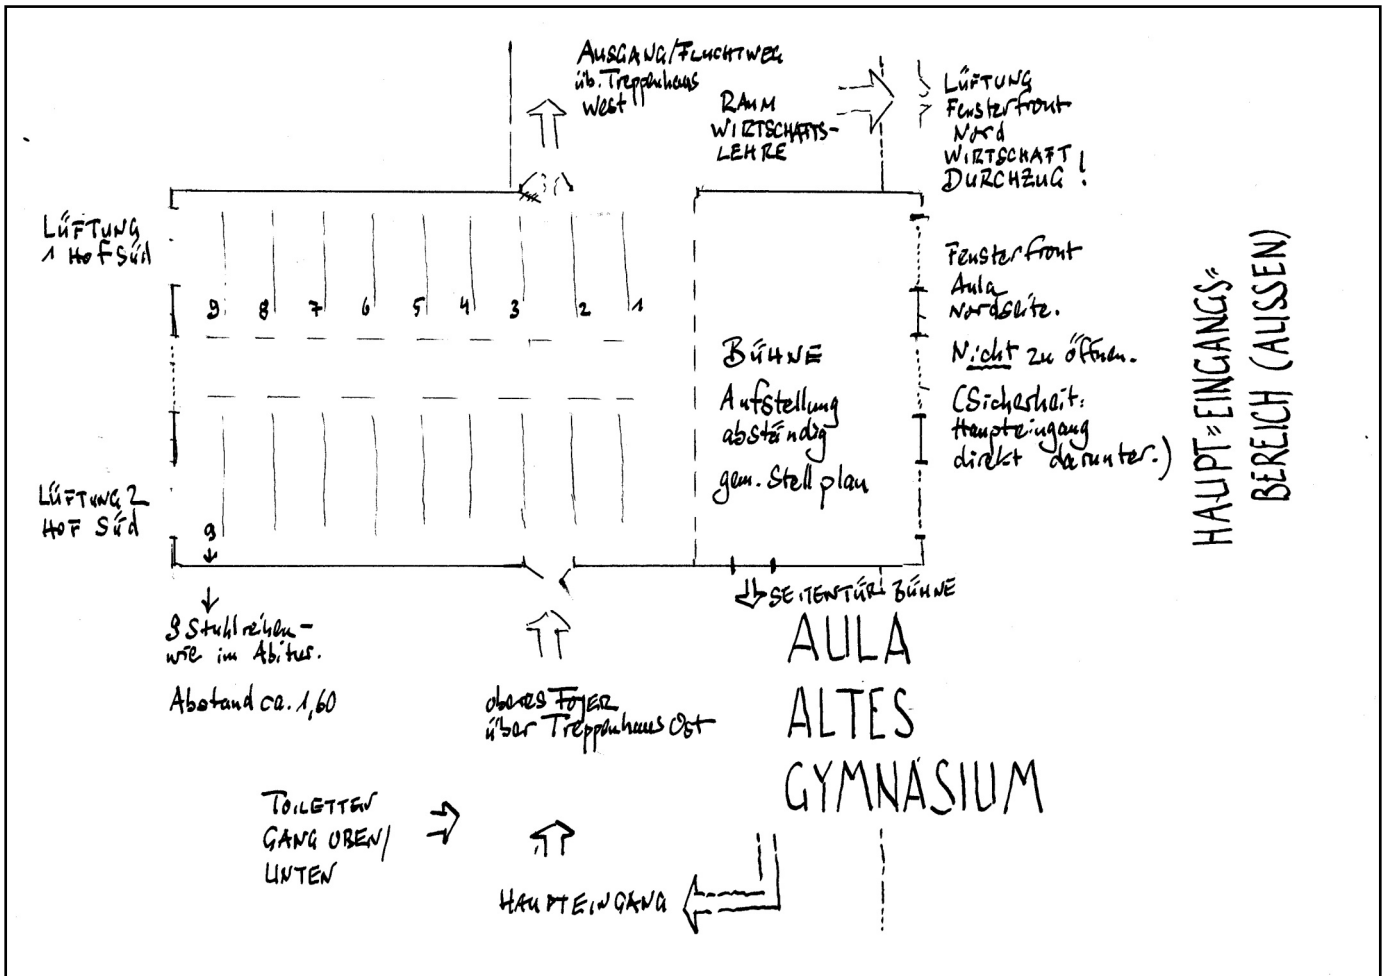 AUSGANG/FLUCHTWEG
üb. Treppenhaus
West
RAUM
WIRTSCHAFTS-
LEHRE
LÜFTUNG
Fensterfront
Nord
WIRTSCHAFT
DURCHZUG!
LÜFTUNG
1 HOF Süd
9 8 7 6 5 4 3 2 1
BÜHNE
Aufstellung
abständig
gem. Stellplan
Fensterfront
Aula
Nordseite.
Nicht zu öffnen.
(Sicherheit:
Haupteingang
direkt darunter.)
HAUPT=EINGANGS=
BEREICH (AUSSEN)
LÜFTUNG 2
HOF Süd
9
SEITENTÜR BÜHNE
9 Stuhlreihen –
wie im Abitur.
Abstand ca. 1,60
oberes FOYER
über Treppenhaus Ost
AULA
ALTES
GYMNASIUM
TOILETTEN
GANG OBEN/
UNTEN
HAUPTEINGANG